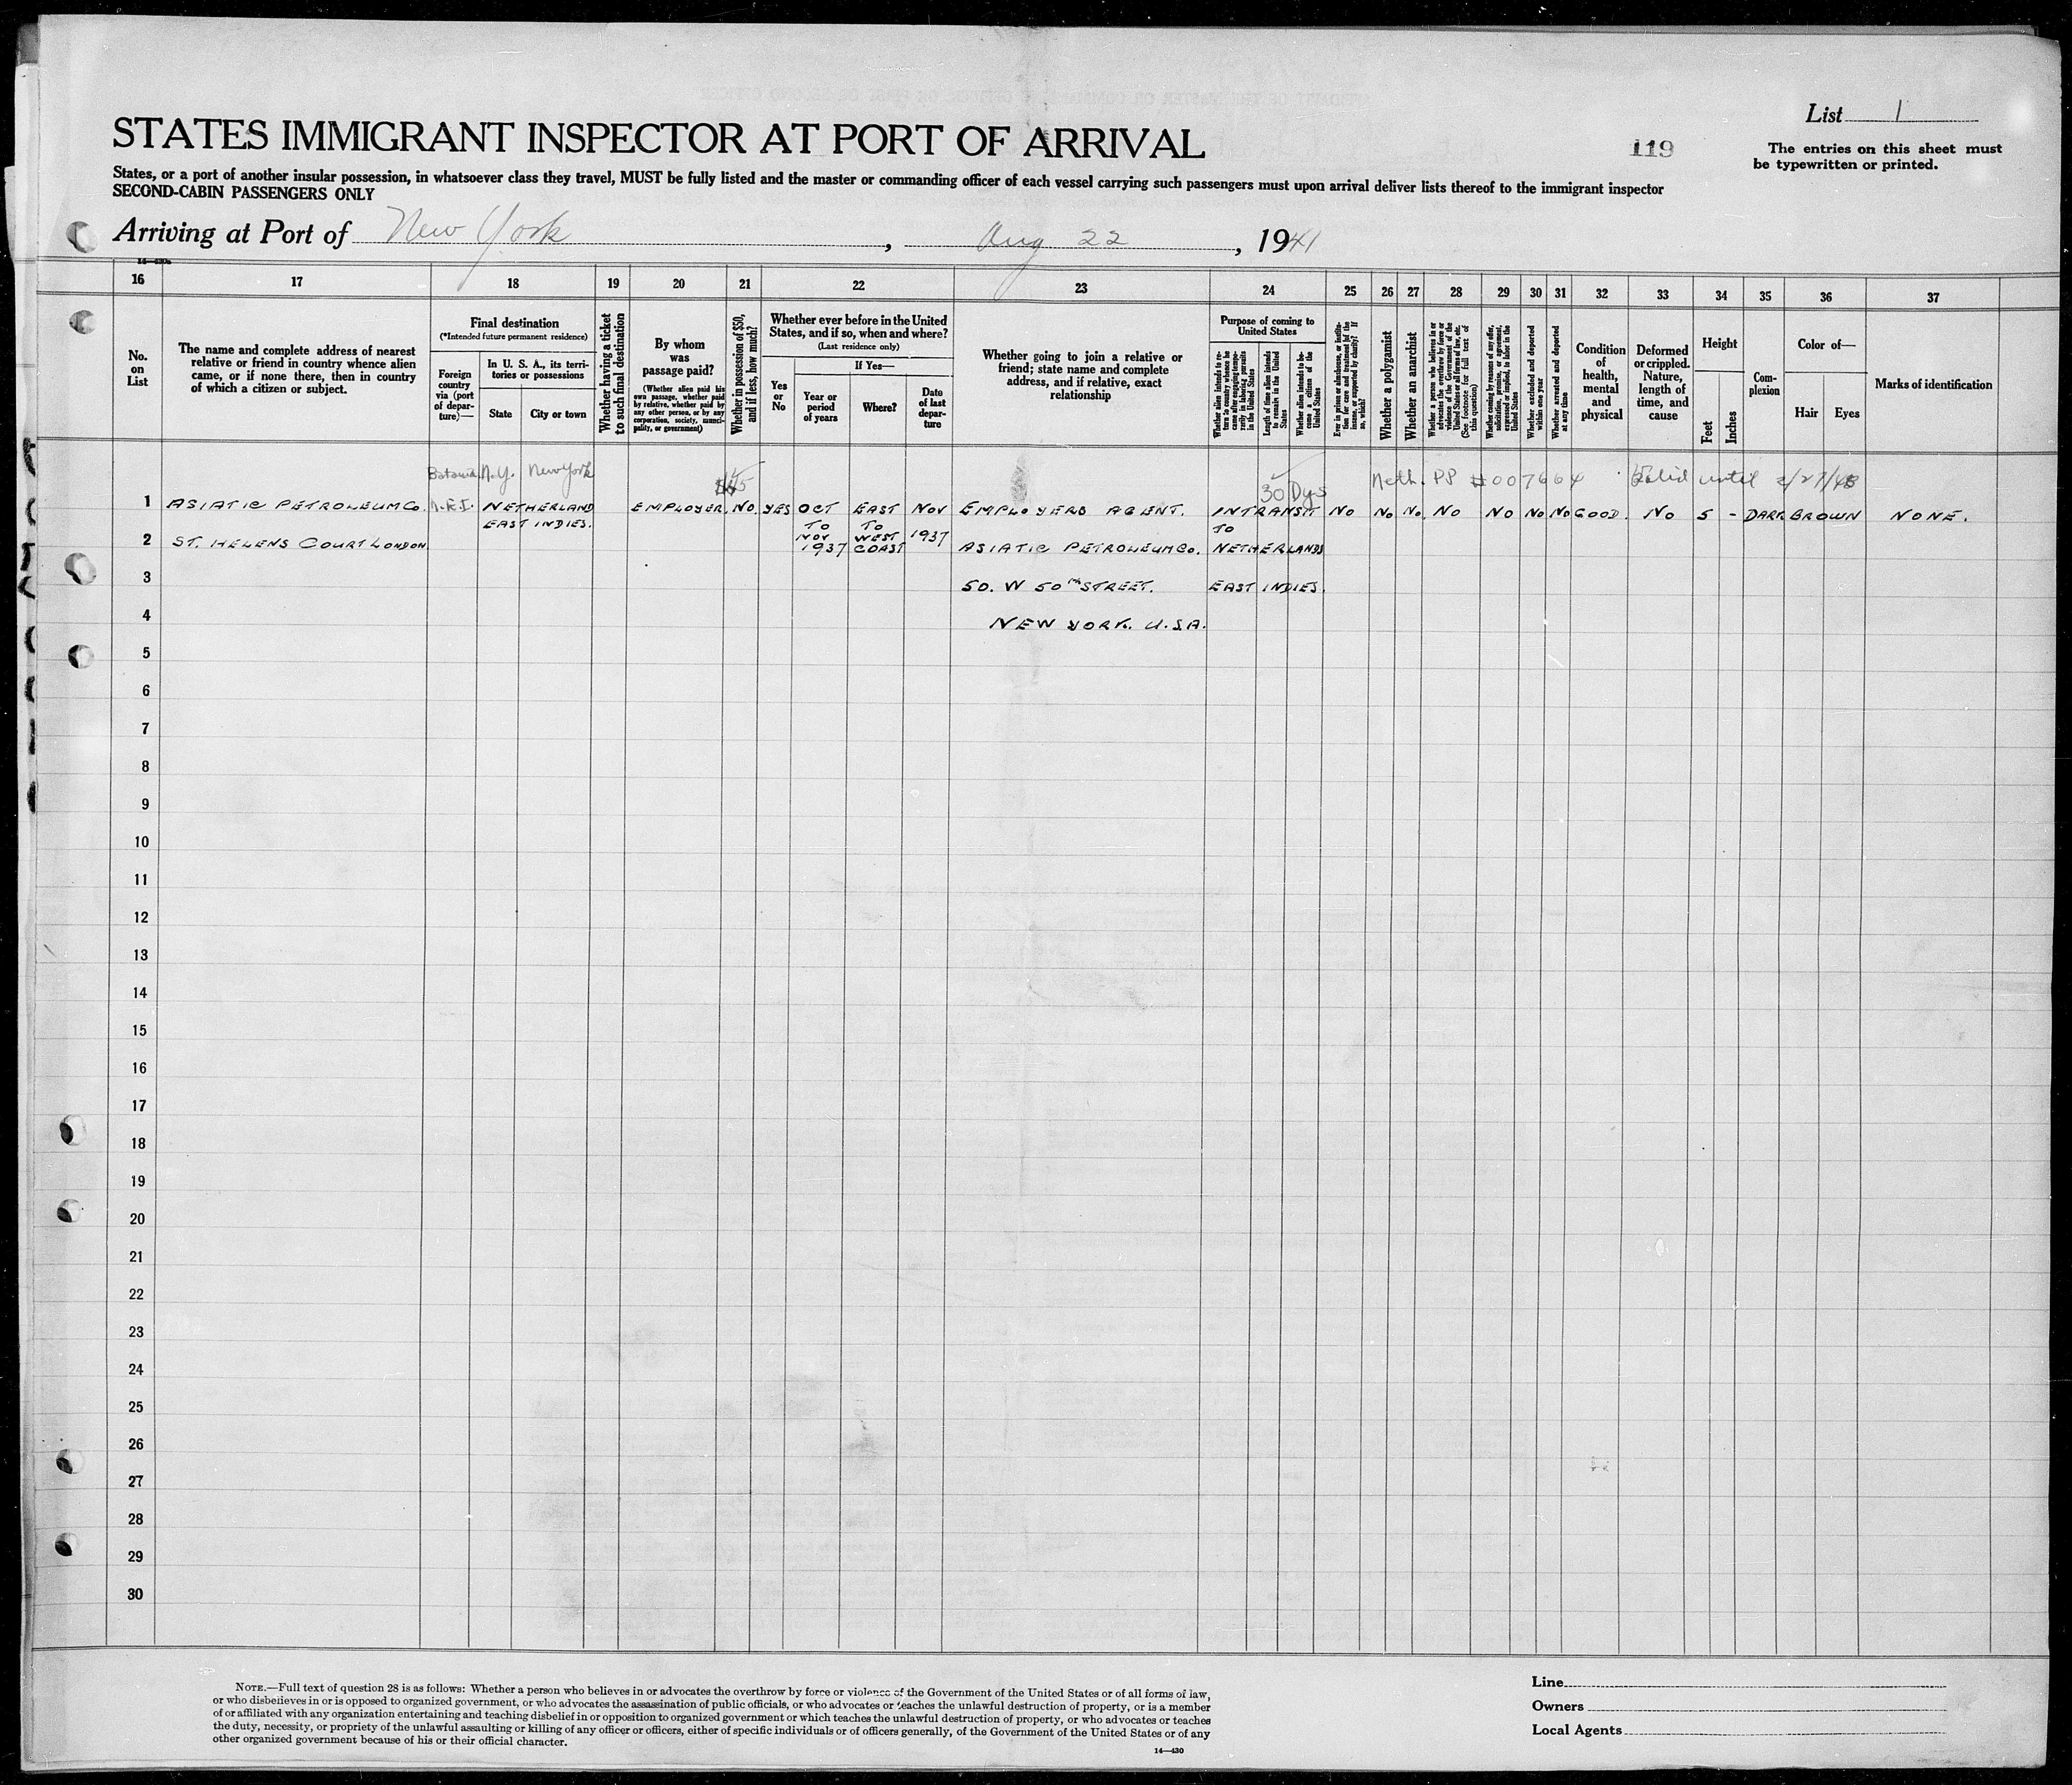 List 1
119
The entries on this sheet must
be typewritten or printed.
STATES IMMIGRANT INSPECTOR AT PORT OF ARRIVAL
States, or a port of another insular possession, in whatsoever class they travel, MUST be fully listed and the master or commanding officer of each vessel carrying such passengers must upon arrival deliver lists thereof to the immigrant inspector
SECOND-CABIN PASSENGERS ONLY
Arriving at Port of New York, Aug 22, 1941
16 17 18 19 20 21 22 23 24 25 26 27 28 29 30 31 32 33 34 35 36 37
No.
on
List
The name and complete address of nearest
relative or friend in country whence alien
came, or if none there, then in country
of which a citizen or subject.
Final destination
(*Intended future permanent residence)
Foreign
country
via (port
of depar-
ture)—
In U. S. A., its terri-
tories or possessions
State
City or town
Whether having a ticket
to such final destination
By whom
was
passage paid?
(Whether alien paid his
own passage, whether paid
by relative, whether paid by
any other person, or by any
corporation, society, munici-
pality, or government)
Whether in possession of $50,
and if less, how much?
Whether ever before in the United
States, and if so, when and where?
(Last residence only)
Yes
or
No
If Yes—
Year or
period
of years
Where?
Date
of last
depar-
ture
Whether going to join a relative or
friend; state name and complete
address, and if relative, exact
relationship
Purpose of coming to
United States
Whether alien intends to re-
turn to country whence he
came after engaging tempo-
rarily in laboring pursuits
in the United States
Length of time alien intends
to remain in the United
States
Whether alien intends to be-
come a citizen of the
United States
Ever in prison or almshouse, or institu-
tion for care and treatment of the
insane, or supported by charity? If
so, which?
Whether a polygamist
Whether an anarchist
Whether a person who believes in or
advocates the overthrow by force or
violence of the Government of the
United States or all forms of law, etc.
(See footnote for full text of
this question)
Whether coming by reasons of any offer,
solicitation, promise, or agreement,
expressed or implied, to labor in the
United States
Whether excluded and deported
within one year
Whether arrested and deported
at any time
Condition
of
health,
mental
and
physical
Deformed
or crippled.
Nature,
length of
time, and
cause
Height
Feet
Inches
Com-
plexion
Color of—
Hair
Eyes
Marks of identification
Batavia N.Y. New York
30 Dys
Neth. PP #007664 Valid until 2/27/43
1 ASIATIC PETROLEUM Co. N.E.I. NETHERLAND EMPLOYER. NO. YES OCT EAST NOV EMPLOYERS AGENT. INTRANSIT NO NO NO. NO NO NO NO GOOD. NO 5 - DARK BROWN NONE.
EAST INDIES. TO TO TO
NOV WEST 1937
2 ST. HELENS COURT LONDON. 1937 COAST ASIATIC PETROLEUM Co. NETHERLANDS
3 50. W 50TH STREET. EAST INDIES.
4 NEW YORK. U.S.A.
5
6
7
8
9
10
11
12
13
14
15
16
17
18
19
20
21
22
23
24
25
26
27
28
29
30
NOTE.—Full text of question 28 is as follows: Whether a person who believes in or advocates the overthrow by force or violence of the Government of the United States or of all forms of law,
or who disbelieves in or is opposed to organized government, or who advocates the assassination of public officials, or who advocates or teaches the unlawful destruction of property, or is a member
of or affiliated with any organization entertaining and teaching disbelief in or opposition to organized government or which teaches the unlawful destruction of property, or who advocates or teaches
the duty, necessity, or propriety of the unlawful assaulting or killing of any officer or officers, either of specific individuals or of officers generally, of the Government of the United States or of any
other organized government because of his or their official character.
14—430
Line
Owners
Local Agents